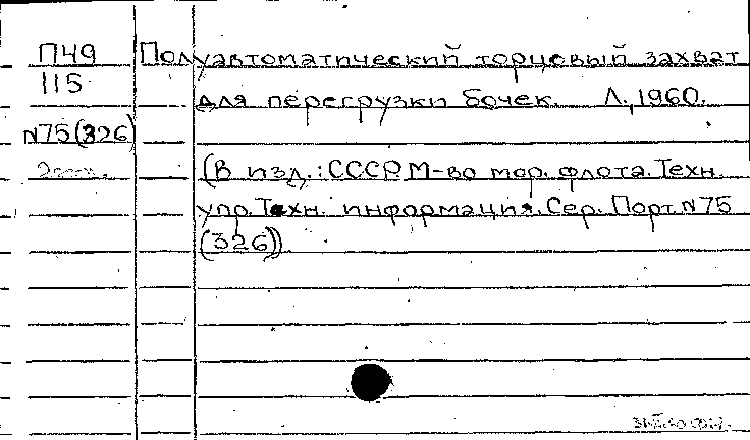 П49
115
N75(326)
Полуавтоматический торцовый захват
для перегрузки бочек. Л., 1960.
(В изд.: СССР. М-во мор. флота. Техн.
упр. Техн. информация. Сер. Порт. N75
(326))